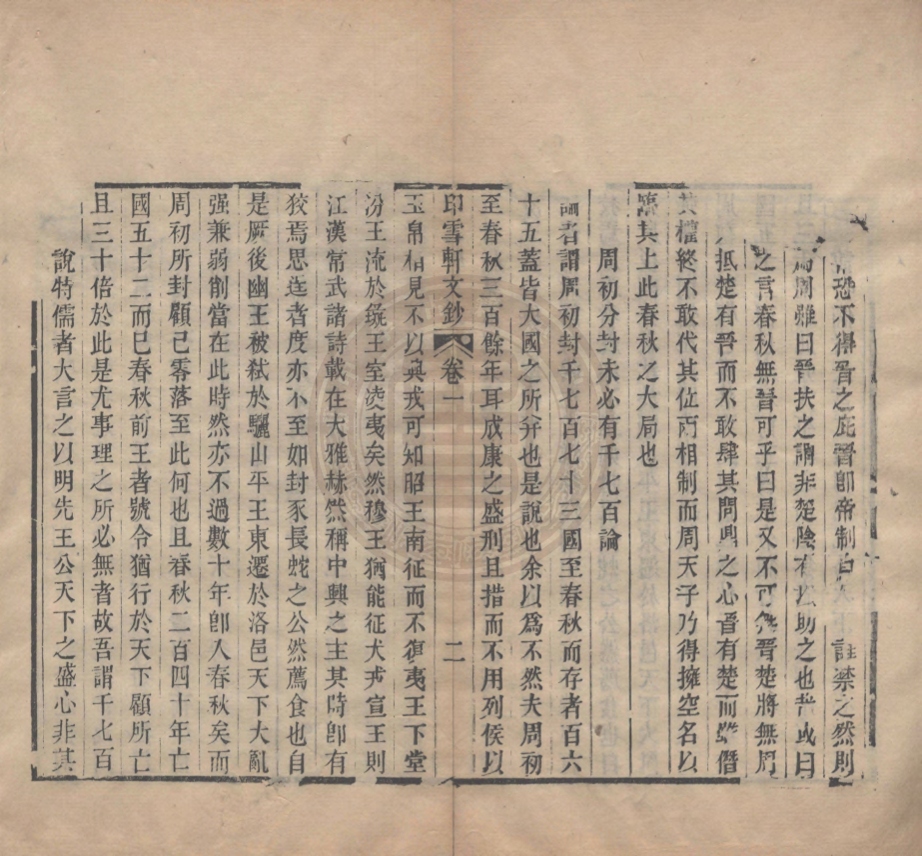 恐不得晉之庇晉卽帝制自 誰禁之然則
周雖曰晉扶之謂非楚陰有以助之也哉或曰
之言春秋無晉可乎曰是又不可無晉楚將無周
抵楚有晉而不敢肆其問鼎之心晉有楚而雖僭
其權終不敢代其位兩相制而周天子乃得擁空名以
臨其上此春秋之大局也
周初分封未必有千七百論
論者謂周初封千七百七十三國至春秋而存者百六
十五蓋皆大國之所并也是說也余以爲不然夫周初
至春秋三百餘年耳成康之盛刑且措而不用列侯以
印雪軒文鈔 卷一 二
玉帛相見不以兵戎可知昭王南征而不復夷王下堂
汾王流於彘王室凌夷矣然穆王猶能征犬戎宣王則
江漢常武諸詩載在大雅赫然稱中興之主其時卽有
狡焉思逞者度亦不至如封豕長蛇之公然薦食也自
是厥後幽王被弒於驪山平王東遷於洛邑天下大亂
强兼弱削當在此時然亦不過數十年卽入春秋矣而
周初所封顧已零落至此何也且春秋二百四十年亡
國五十二而已春秋前王者號令猶行於天下顧所亡
且三十倍於此是尤事理之所必無者故吾謂千七百
說特儒者大言之以明先王公天下之盛心非其